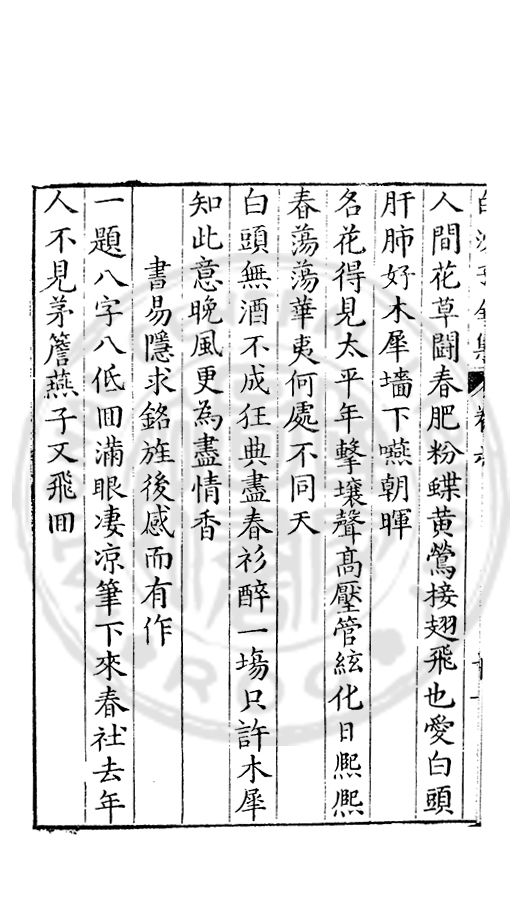 白沙子全集 卷六
人間花草闘春肥粉蝶黃鶯接翅飛也愛白頭
肝肺好木犀墻下嚥朝暉
名花得見太平年擊壤聲高壓管絃化日熈熈
春蕩蕩華夷何處不同天
白頭無酒不成狂典盡春衫醉一塲只許木犀
知此意晚風更為盡情香
書易隱求銘旌後感而有作
一題八字八低囬滿眼凄凉筆下來春社去年
人不見茅簷燕子又飛囬